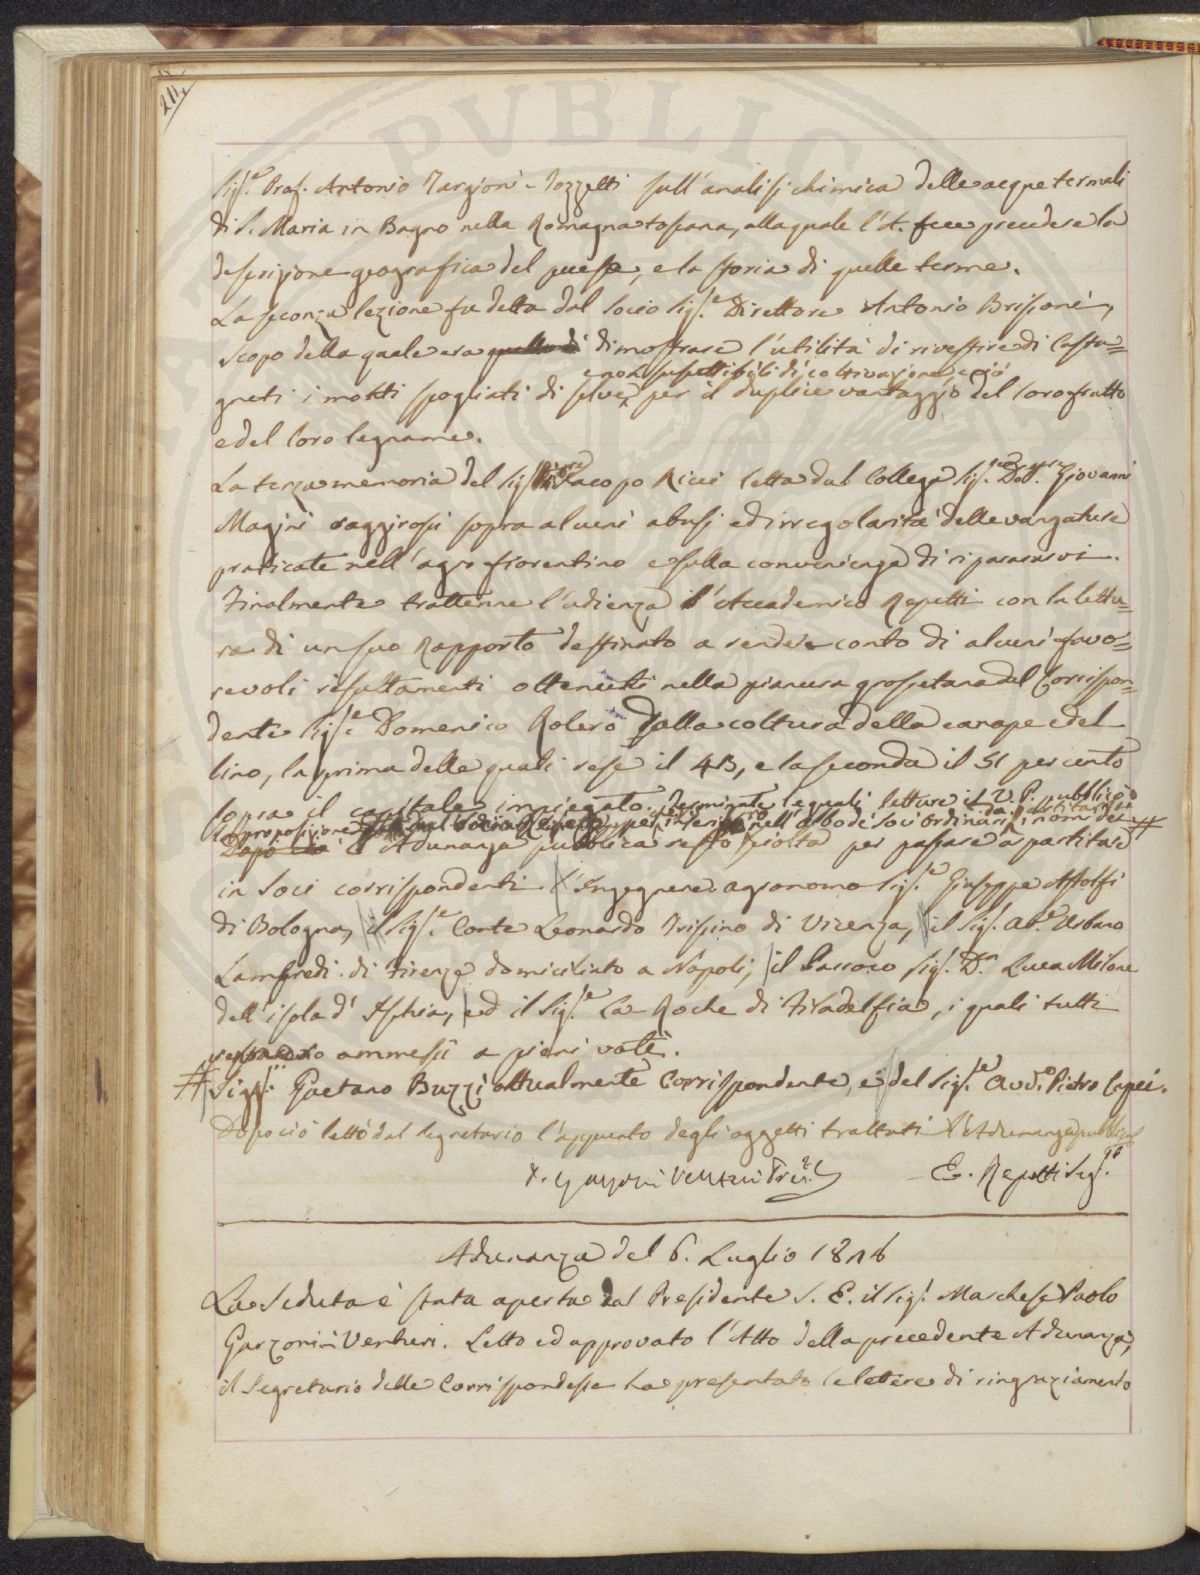 211
PVBLIC
Sig.e Prof. Antonio Targioni-Tozzetti sull'analisi chimica delle acque termali
di S. Maria in Bagno nella Romagna toscana, alla quale l'A. fece precedere la
descrizione geografica del paese, e la storia di quelle terme.
La seconda lezione fu detta dal Socio Sig.e Direttore Antonio Brissoni,
scopo della quale era quello di dimostrare l'utilità di rivestire di Casta=
e non suscettibili di coltivazione e ciò
gneti i monti spogliati di selve per il duplice vantaggio del loro frutto
e del loro legname.
La terza memoria del Sig. Jacopo Ricci letta dal Collega Sig. Dott. Giovanni
Magini raggirosi sopra alcuni abusi ed irregolarità delle vangature
praticate nell'agro fiorentino e sulla convenienza di ripararvi.
Finalmente trattenne l'udienza l'Accademico Repetti con la lettu=
ra di un suo Rapporto destinato a rendere conto di alcuni favo=
revoli resultamenti ottenuti nella pianura grossetana dal Corrispon=
dente Sig.e Domenico Rolero dalla coltura della canape e del
lino, la prima delle quali rese il 43, e la seconda il 51 per cento
sopra il capitale impiegato. Terminate le quali letture il V. P. pubblicò
nell'albo de' soci ordinari i nomi dei #
Dopo ciò l'Adunanza pubblica restò sciolta per passare a partitare
in Soci corrispondenti l'Ingegnere agronomo Sig.e Giuseppe Astolfi
di Bologna, il Sig.e Conte Leonardo Trissino di Vicenza, il Sig. Ab.e Urbano
Lamfredi di Firenze domiciliato a Napoli, il Parroco Sig. D.n Luca Milone
dell'isola d'Ischia, ed il Sig.e La Roche di Filadelfia, i quali tutti
ammessi a pieni voti.
# Sigg.ri Gaetano Buzzi attualmente Corrispondente, e del Sig.e Avv.o Pietro Capei.
Dopo ciò letto dal Segretario l'appunto degli oggetti trattati l'Adunanza
Garzoni Venturi Pres.e E. Repetti Seg.
Adunanza del 6. Luglio 1818
La Seduta è stata aperta dal Presidente S. E. il Sig. Marchese Paolo
Garzoni Venturi. Letto ed approvato l'Atto della precedente Adunanza,
il Segretario delle Corrispondenze ha presentato le lettere di ringraziamento